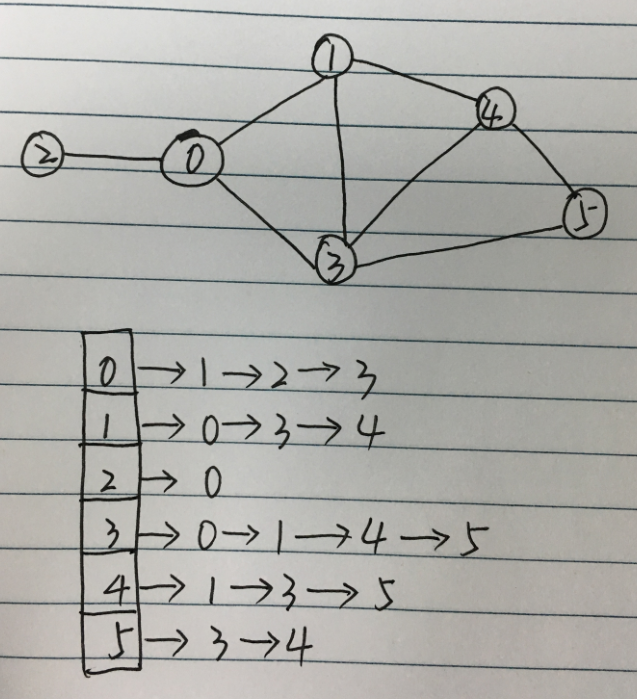 1
4
2 0
5
3
0 → 1 → 2 → 3
1 → 0 → 3 → 4
2 → 0
3 → 0 → 1 → 4 → 5
4 → 1 → 3 → 5
5 → 3 → 4